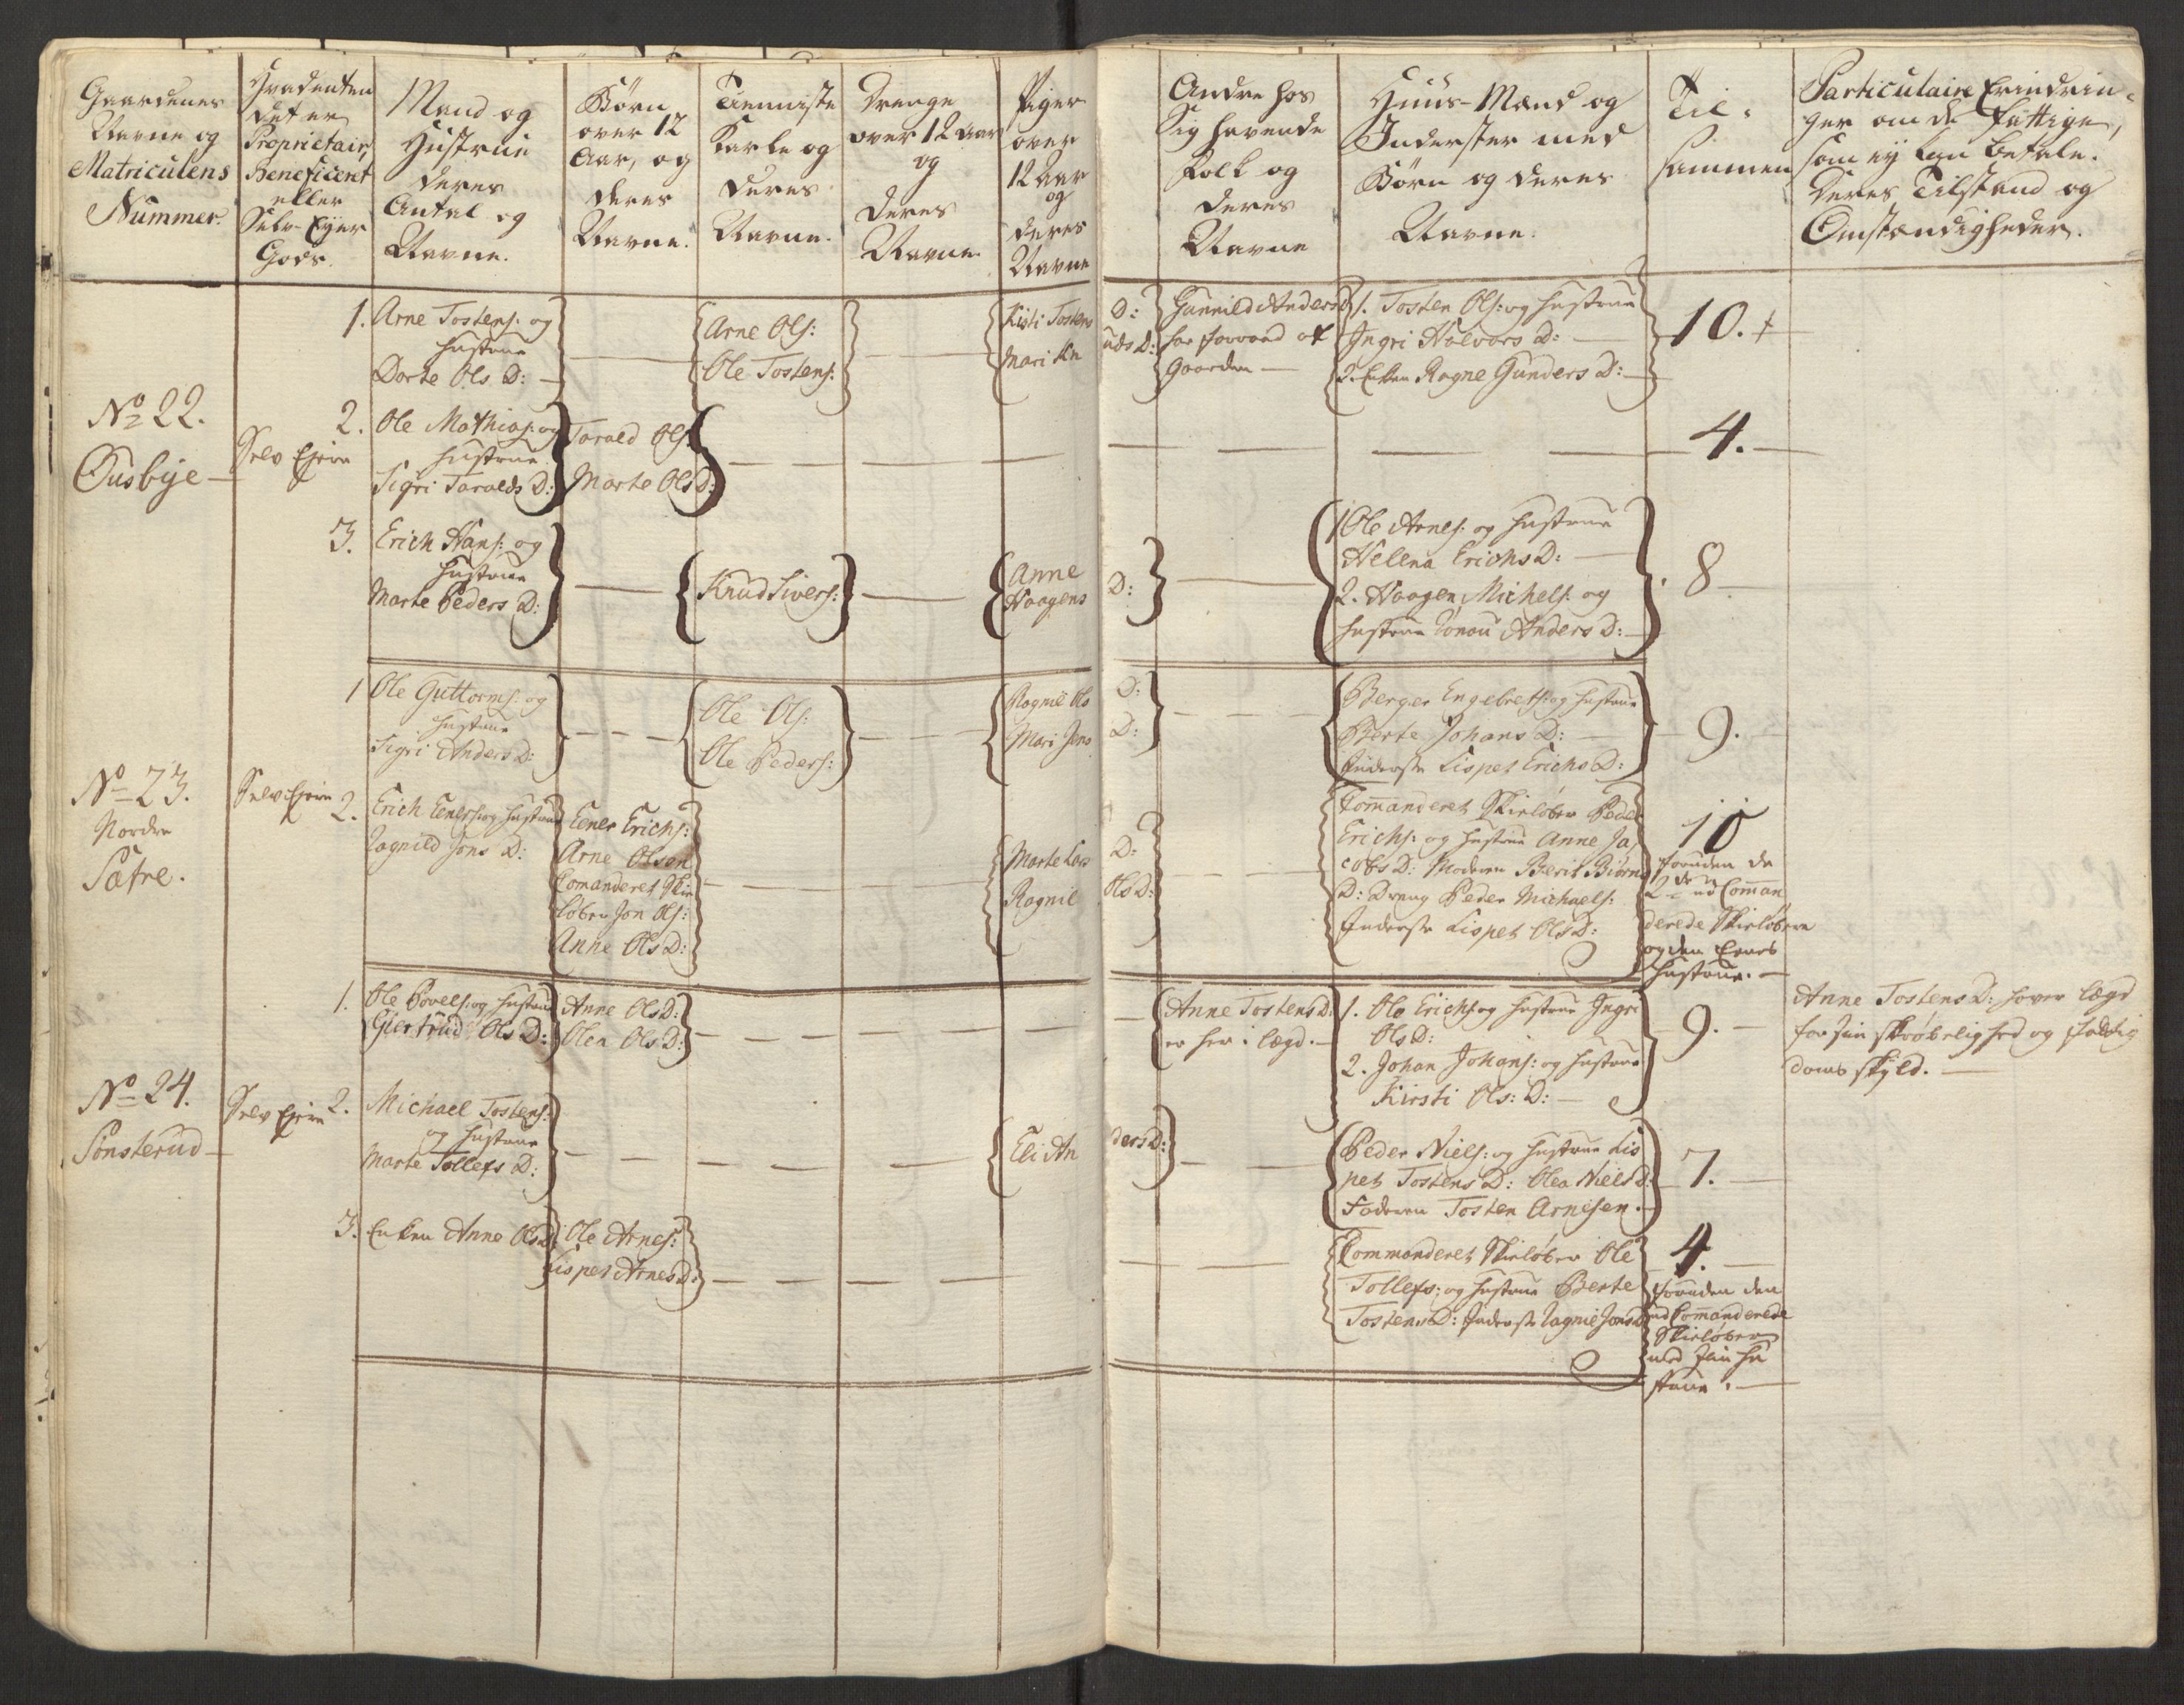 Gaardenes
Navne og
Matriculens
Nummer.
Hvadenten
det er
Proprietair,
Beneficeret
eller
Selv-Eyer
Gods.
Mand og
Hustrue
deres
Antal og
Navne.
Børn
over 12
Aar, og
deres
Navne.
Tienniste
Karle og
deres
Navne.
Drenge
over 12 Aar
og
deres
Navne.
Piger
over
12 Aar
og
deres
Navne
Andre hos
sig havende
Folk og
deres
Navne
Huus-Mænd og
Inderster med
Børn og deres
Navne.
Til-
sammen
Particulaire Erindrin-
ger om de fattige,
som ey kan betale.
deres Tilstand og
Omstændigheder.
No 22.
Ousbye
Selv Ejere
1. Arne Tostens: og
hustrue
Dorte Ols D:
Arne Ols:
Ole Tostens:
Kisti Tostens D:
Mari Knuds D:
Gunnild Anders D:
for forraad af
Gaarden
1. Tosten Ols: og hustrue
Ingri Halvors D:
2. Enken Ragne Gunders D:
10.
2. Ole Mathias: og
hustrue
Sigri Taralds D:
Tarald Ols:
Marte Ols D:
4.
3. Erich Hans: og
hustrue
Marte Peders D:
Knud Sivers:
Anne
Haagens D:
1 Ole Arnes: og hustrue
Helena Erichs D:
2. Haagen Michels: og
hustrue Anders D:
8
No 23.
Nordre
Sætre.
Selv Ejere
1 Ole Guttorms: og
hustrue
Sigri Anders D:
Ole Ols:
Ole Peders:
Ragnil Ols D:
Mari Jens D:
Berger Engebrets: og hustrue
Berte Johans D:
Inderste Lispet Erichs D:
9.
2. Erich Eeners: og hustrue
Ragnild Jons D:
Eener Erichs:
Arne Olsen
Comanderet Skie
løber Jon Ols:
Anne Ols D:
Marte Lars D:
Ragnil Ols D:
Commanderet Skieløber Peder
Erichs: og hustrue Anne Ja
cobs D: Moderen Berit Biørns
D: Dreng Peder Michaels:
Inderste Lispet Ols D:
10
foruden de
2de ud Comman
derede Skieløbere
og den Eenes
hustrue.
No 24.
Sønsterud
Selv Ejere
1. Ole Povels: og hustrue
Giertrud Ols D:
Anne Ols D:
Olea Ols D:
Anne Tostens D:
er her i lægd.
1. Ole Erichs: og hustrue Ingri
Ols D:
2. Johan Johans: og hustrue
Kirsti Ols: D:
9.
Anne Tostens D: haver lægd
for sin skrøbelighed og fattig
doms skyld.
2. Michael Tostens:
og hustrue
Marte Tollefs D:
Eli Anders D:
Peder Niels: og hustrue Lis
pet Tostens D: Olea Niels D:
Faderen Tosten Arnesen.
7.
3. Enken Anne Ols D:
Ole Arnes:
Lispet Arnes D:
Commanderet Skieløber Ole
Tollefs: og hustrue Berte
Tostens D: Inderste Ragnil Jons D:
4.
foruden den
ud Commanderede
Skieløber
med sin hu
strue.